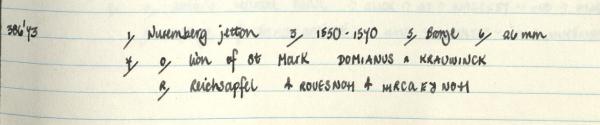 386'73 1, Nuremberg jetton 3, 1550-1570 5, Bronze 6, 26mm
7, O, Lion of St Mark DOMIANUS KRAUWINCK
R, Reichsapfel ROUESNOH MRCA EY NOH